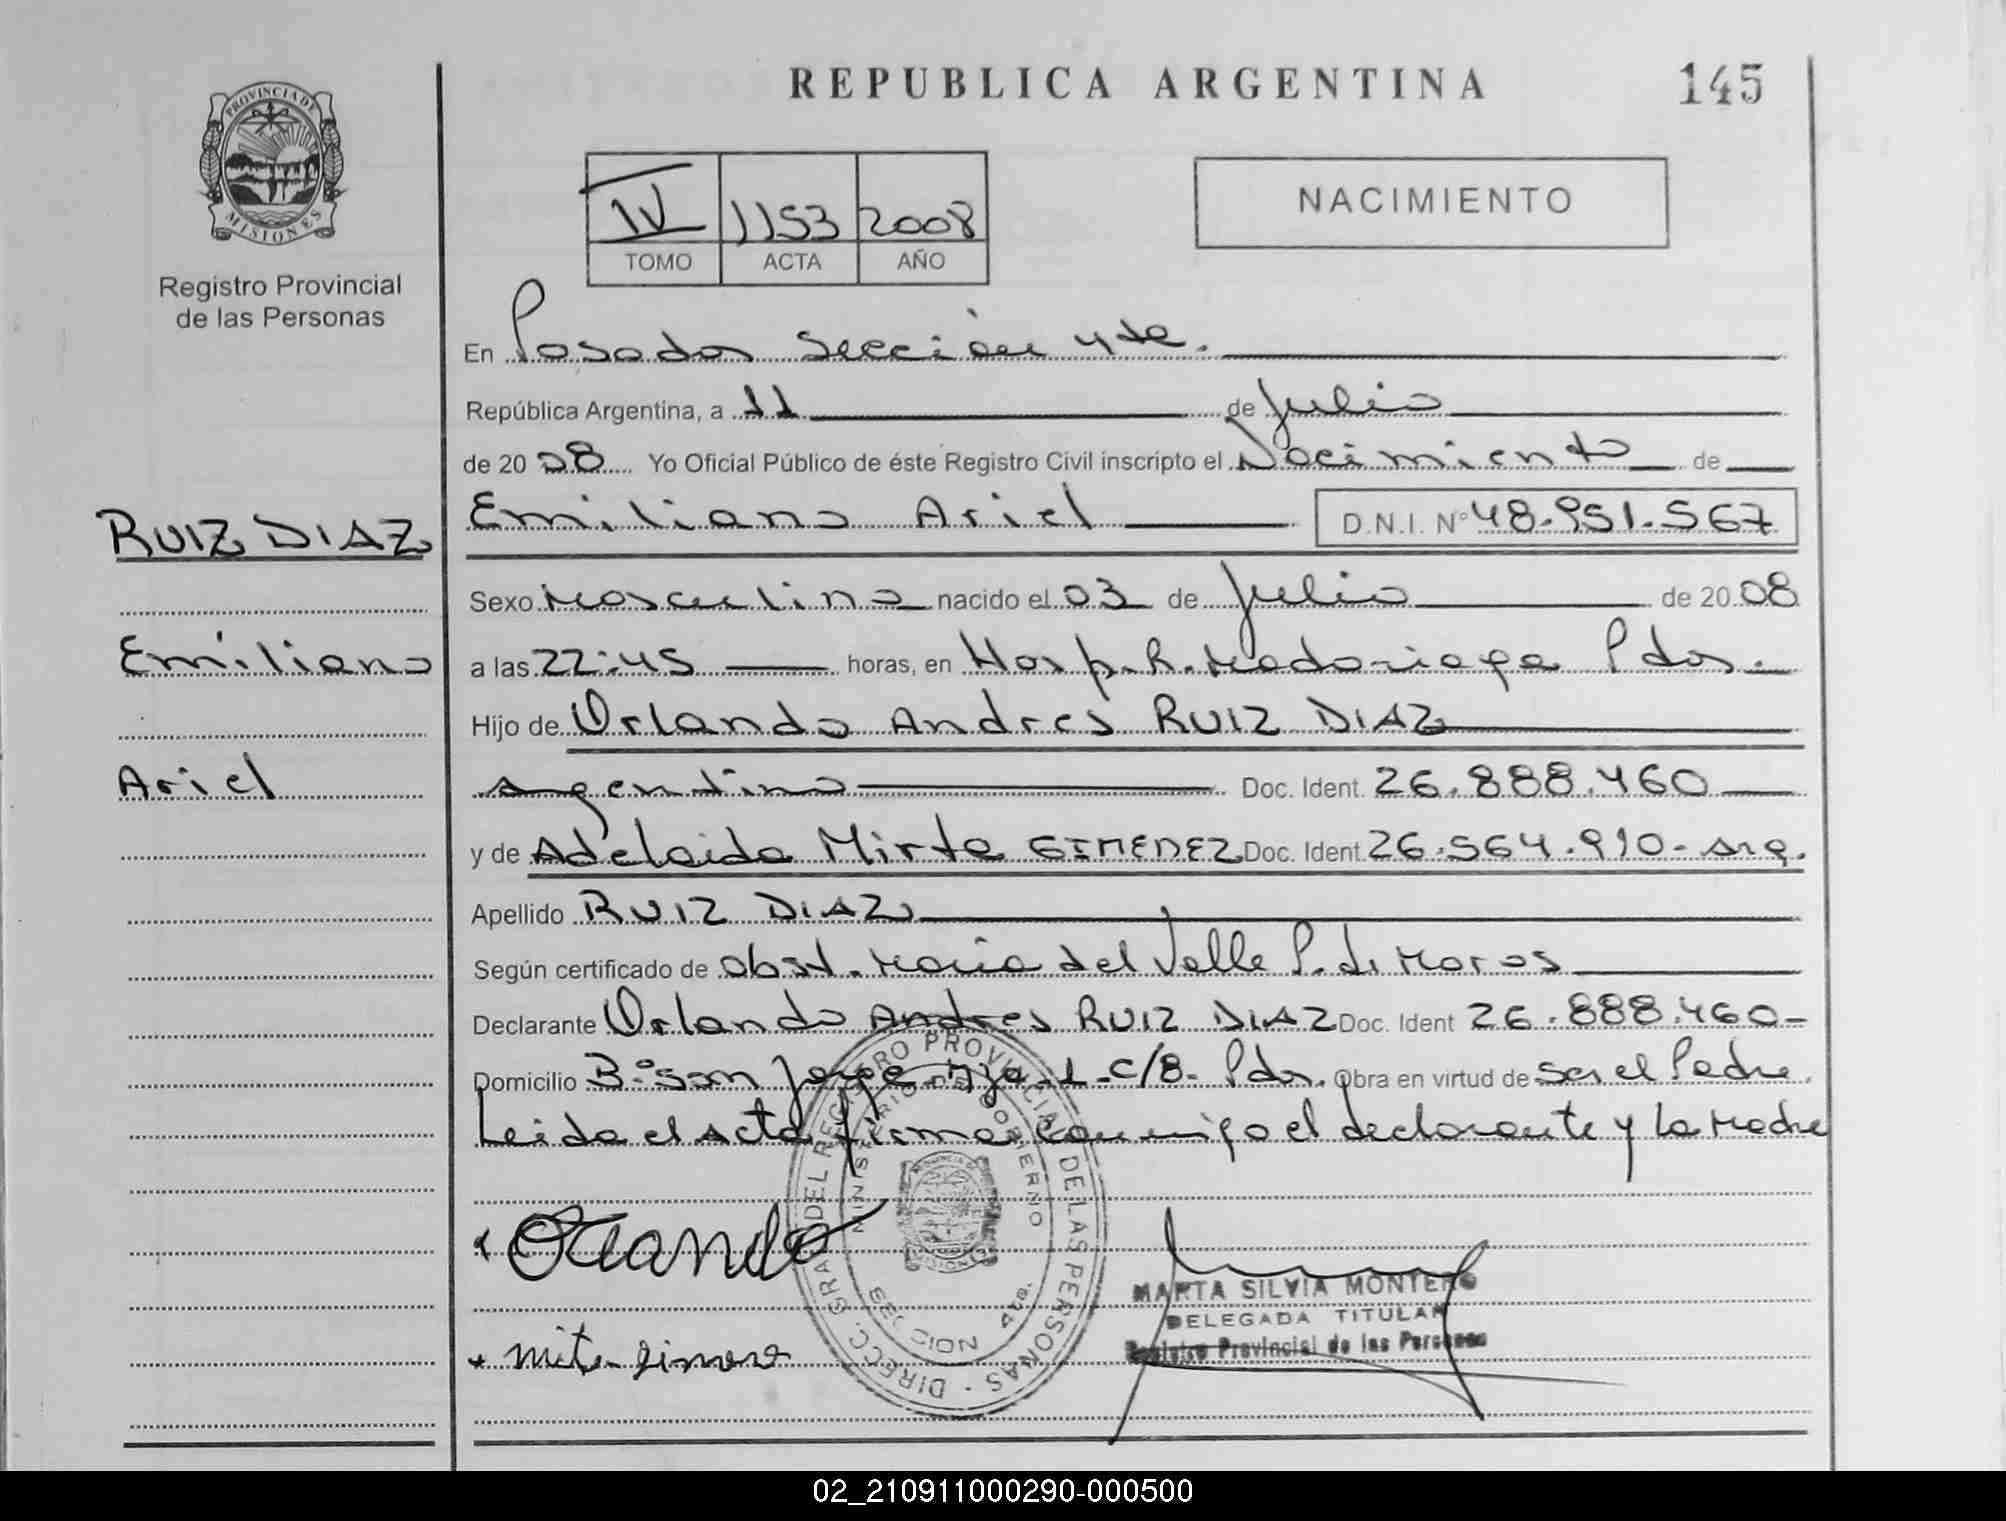 REPUBLICA ARGENTINA
145
PROVINCIA DE
MISIONES
Registro Provincial
de las Personas
IV 1153 2008
TOMO ACTA AÑO
NACIMIENTO
En Posadas Sección 4ta.
República Argentina, a 11 de Julio
de 20 08 Yo Oficial Público de éste Registro Civil inscripto el Nacimiento de
RUIZ DIAZ
Emiliano Ariel D.N.I. N° 48.951.567
Sexo Masculino nacido el 03 de Julio de 20 08
Emiliano
a las 22:45 horas, en Hosp. R. Madariaga Pdas.
Hijo de Orlando Andres RUIZ DIAZ
Ariel
Argentino Doc. Ident. 26.888.460
y de Adelaida Mirta GIMENEZ Doc. Ident 26.564.910- Arg.
Apellido RUIZ DIAZ
Según certificado de Obst. María del Valle P. de Moros
Declarante Orlando Andres RUIZ DIAZ Doc. Ident 26.888.460-
Domicilio B° San Jorge C/8- Pdas. Obra en virtud de ser el Padre.
Leida el Acta firma conmigo el declarante y La Madre
DIRECC. GRAL DEL REGISTRO PROVINCIAL DE LAS PERSONAS
MINISTERIO DE GOBIERNO
PROVINCIA DE
MISIONES
SECCION 4ta.
Orlando
MARTA SILVIA MONTERO
DELEGADA TITULAR
Registro Provincial de las Personas
02_210911000290-000500